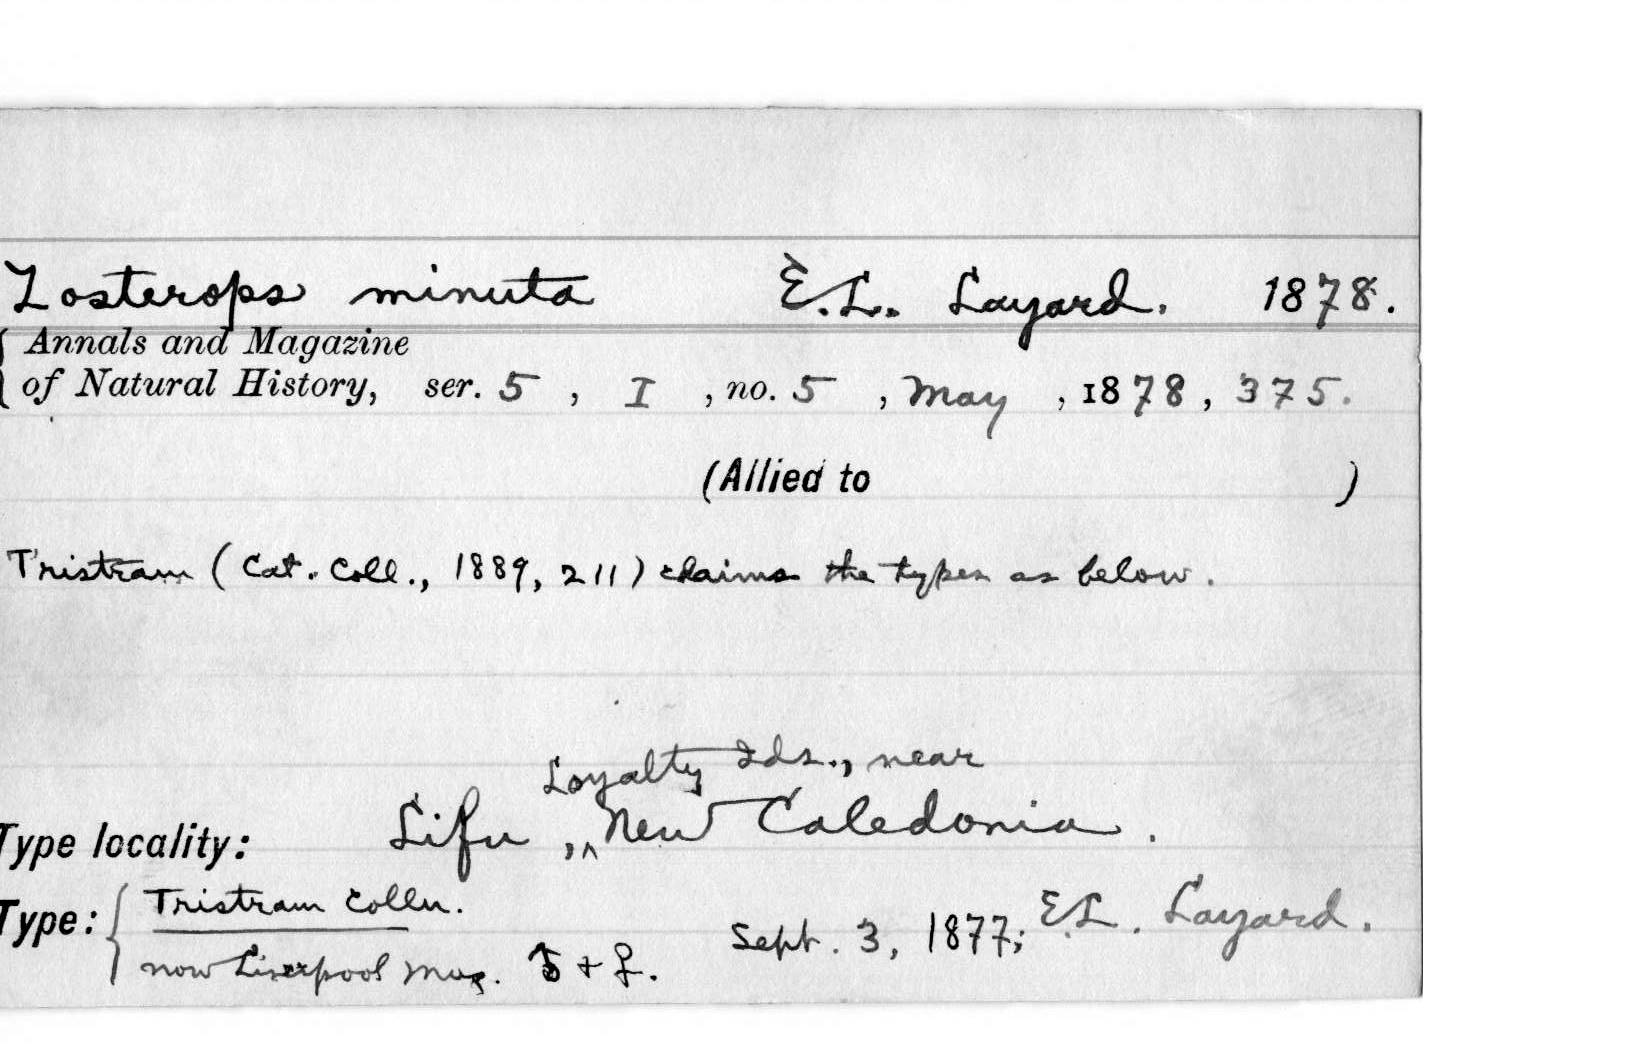 Zosterops minuta E. L. Layard. 1878.
Annals and Magazine
of Natural History, ser. 5, I, no. 5, May, 1878, 375.
(Allied to )
Tristram (Cat. Coll., 1889, 211) claims the types as below.
Loyalty Ids., near
Type locality: Lifu, ^ New Caledonia.
Type: { Tristram Colln. Sept. 3, 1877; E.L. Layard.
now Liverpool Mus. ♂ + ♀.